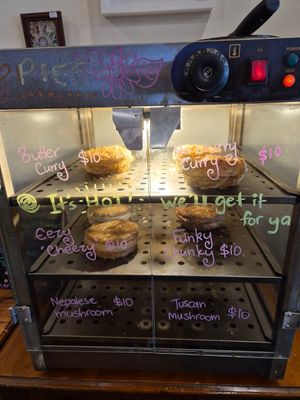 PIES
POWER
Butter
Curry $10
Curry $10
It's Hot! we'll get it
for ya
Eezy
Cheezy $10
Funky
chunky $10
Nepolese $10
mushroom
Tuscan
mushroom $10